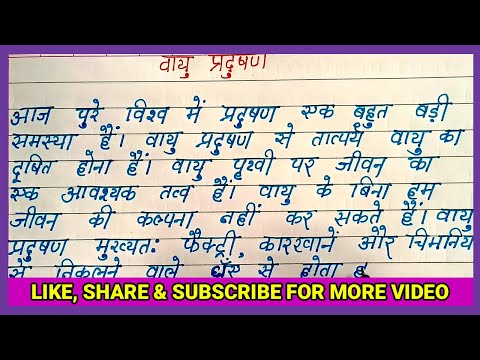 वायु प्रदुषण
आज पुरे विश्व में प्रदुषण एक बहुत बड़ी
समस्या हैं। वायु प्रदुषण से तात्पर्य वायु का
दूषित होना हैं। वायु पृथ्वी पर जीवन का
एक आवश्यक तत्व हैं। वायु के बिना हम
जीवन की कल्पना नहीं कर सकते हैं। वायु
प्रदुषण मुख्यतः फैक्ट्री, कारखानें और चिमनिय
से निकलने वाले से होता ह
LIKE, SHARE & SUBSCRIBE FOR MORE VIDEO